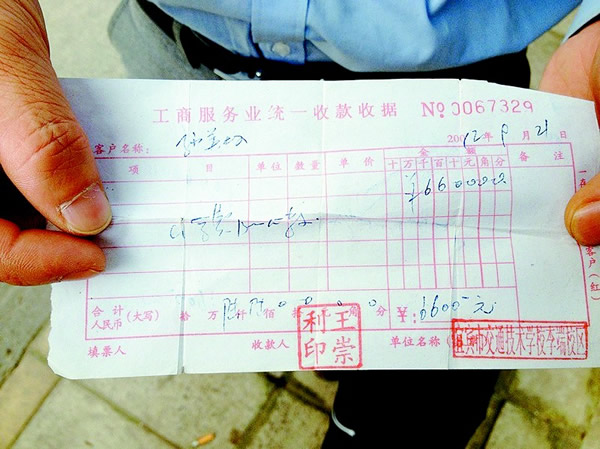 工商服务业统一收款收据 № 0067329
客户名称: 2012年9月21日
项 目 单位 数量 单价 金额 备注
十万千百十元角分
¥660000
合计人民币 (大写) 拾 万 陆仟 陆佰 0 拾 0 元 0 角 0 分 ¥: 6600元
填票人 收款人 单位名称
王崇利印
宜宾市交通技术学校李端校区